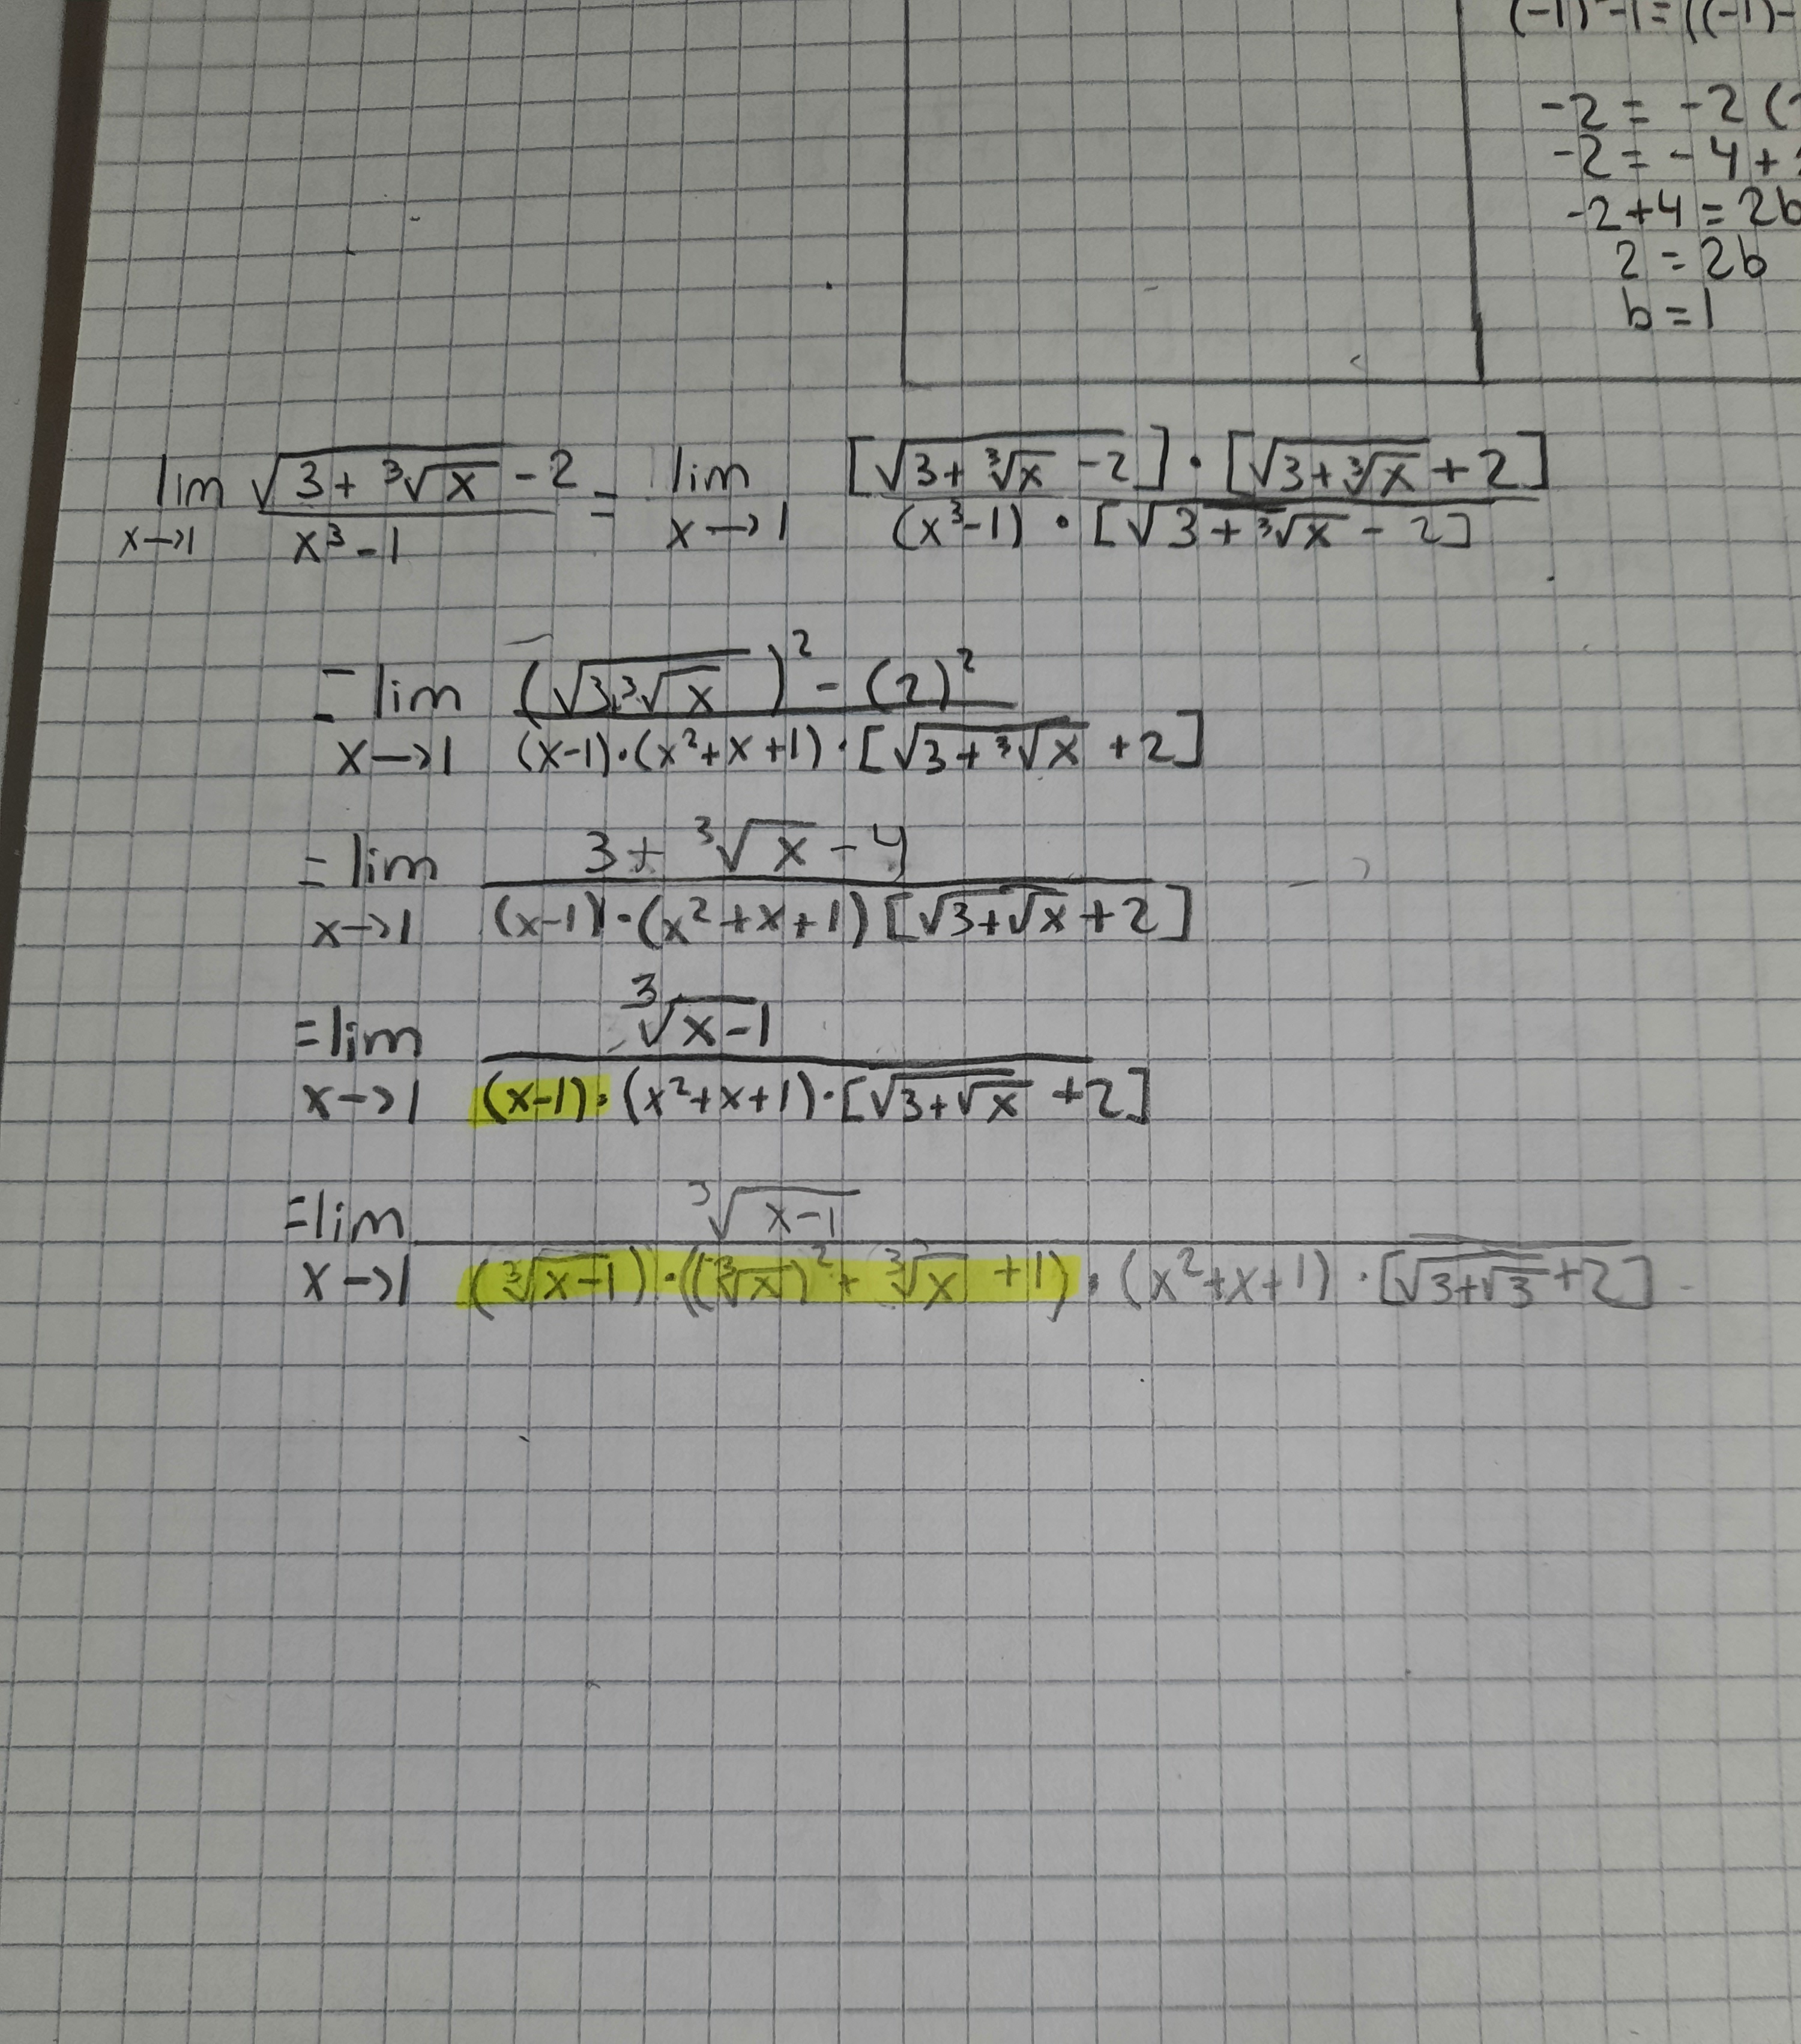 (-1) -1 = ((-1)-
-2 = -2 (
-2 = -4 +
-2+4 = 2b
2 = 2b
b = 1
lim x→1 (√(3+∛x) - 2)/(x³-1) = lim x→1 ([√(3+∛x) -2]·[√(3+∛x) +2])/((x³-1)·[√(3+∛x) - 2])
= lim x→1 ((√(3+∛x))² - (2)²)/((x-1)·(x²+x+1)·[√(3+∛x) +2])
= lim x→1 (3+ ∛x - 4)/((x-1)·(x²+x+1)[√(3+√x) +2])
= lim x→1 ∛(x-1)/((x-1)·(x²+x+1)·[√(3+√x) +2])
= lim x→1 ∛(x-1)/((∛(x-1))·((∛x)²+ ∛x +1)·(x²+x+1)·[√(3+√3) +2])